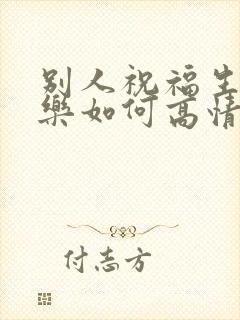 别人祝福生
乐如何高情
付志方